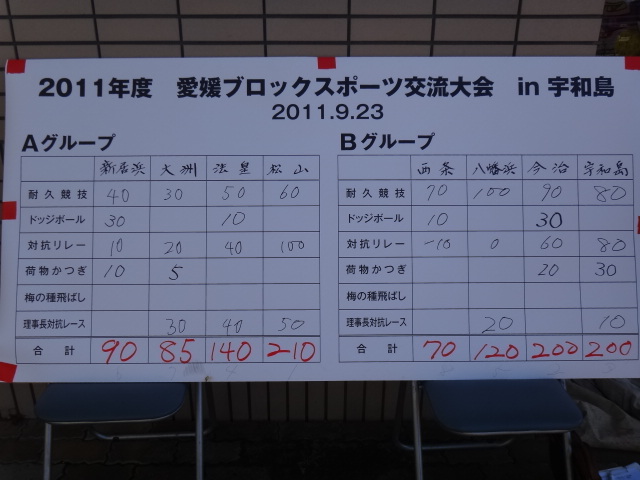 2011年度 愛媛ブロックスポーツ交流大会 in 宇和島
2011.9.23
Aグループ
新居浜 大洲 法皇 松山
耐久競技 40 30 50 60
ドッジボール 30 10
対抗リレー 10 20 40 100
荷物かつぎ 10 5
梅の種飛ばし
理事長対抗レース 30 40 50
合計 90 85 140 210
Bグループ
西条 八幡浜 今治 宇和島
耐久競技 70 100 90 80
ドッジボール 10 30
対抗リレー -10 0 60 80
荷物かつぎ 20 30
梅の種飛ばし
理事長対抗レース 20 10
合計 70 120 200 200